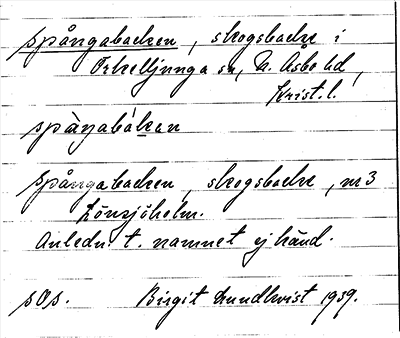 Spångabacken, skogsbacke i
Örkelljunga sn, N. Åsbo hd,
Krist. l.
spàŋabákan
Spångabacken, skogsbacke, nr 3
Lönsjöholm.
Anledn t. namnet ej känd.
sOs. Birgit Lundkvist 1939.